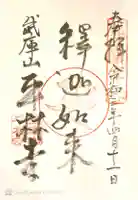 奉拝 令和三年四月十一日
釋迦如来
武庫山
平林寺